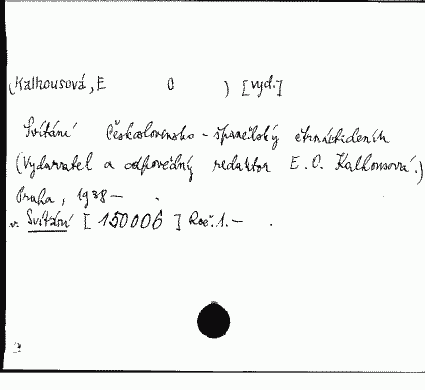 (Kalhousová, E O ) [vyd.]
Svítání Československo-španělský čtrnáctideník
(Vydavatel a odpovědný redaktor E. O. Kalhousová.)
Praha, 1938— .
v. Svítání [ 150006 ] Roč. 1.— .